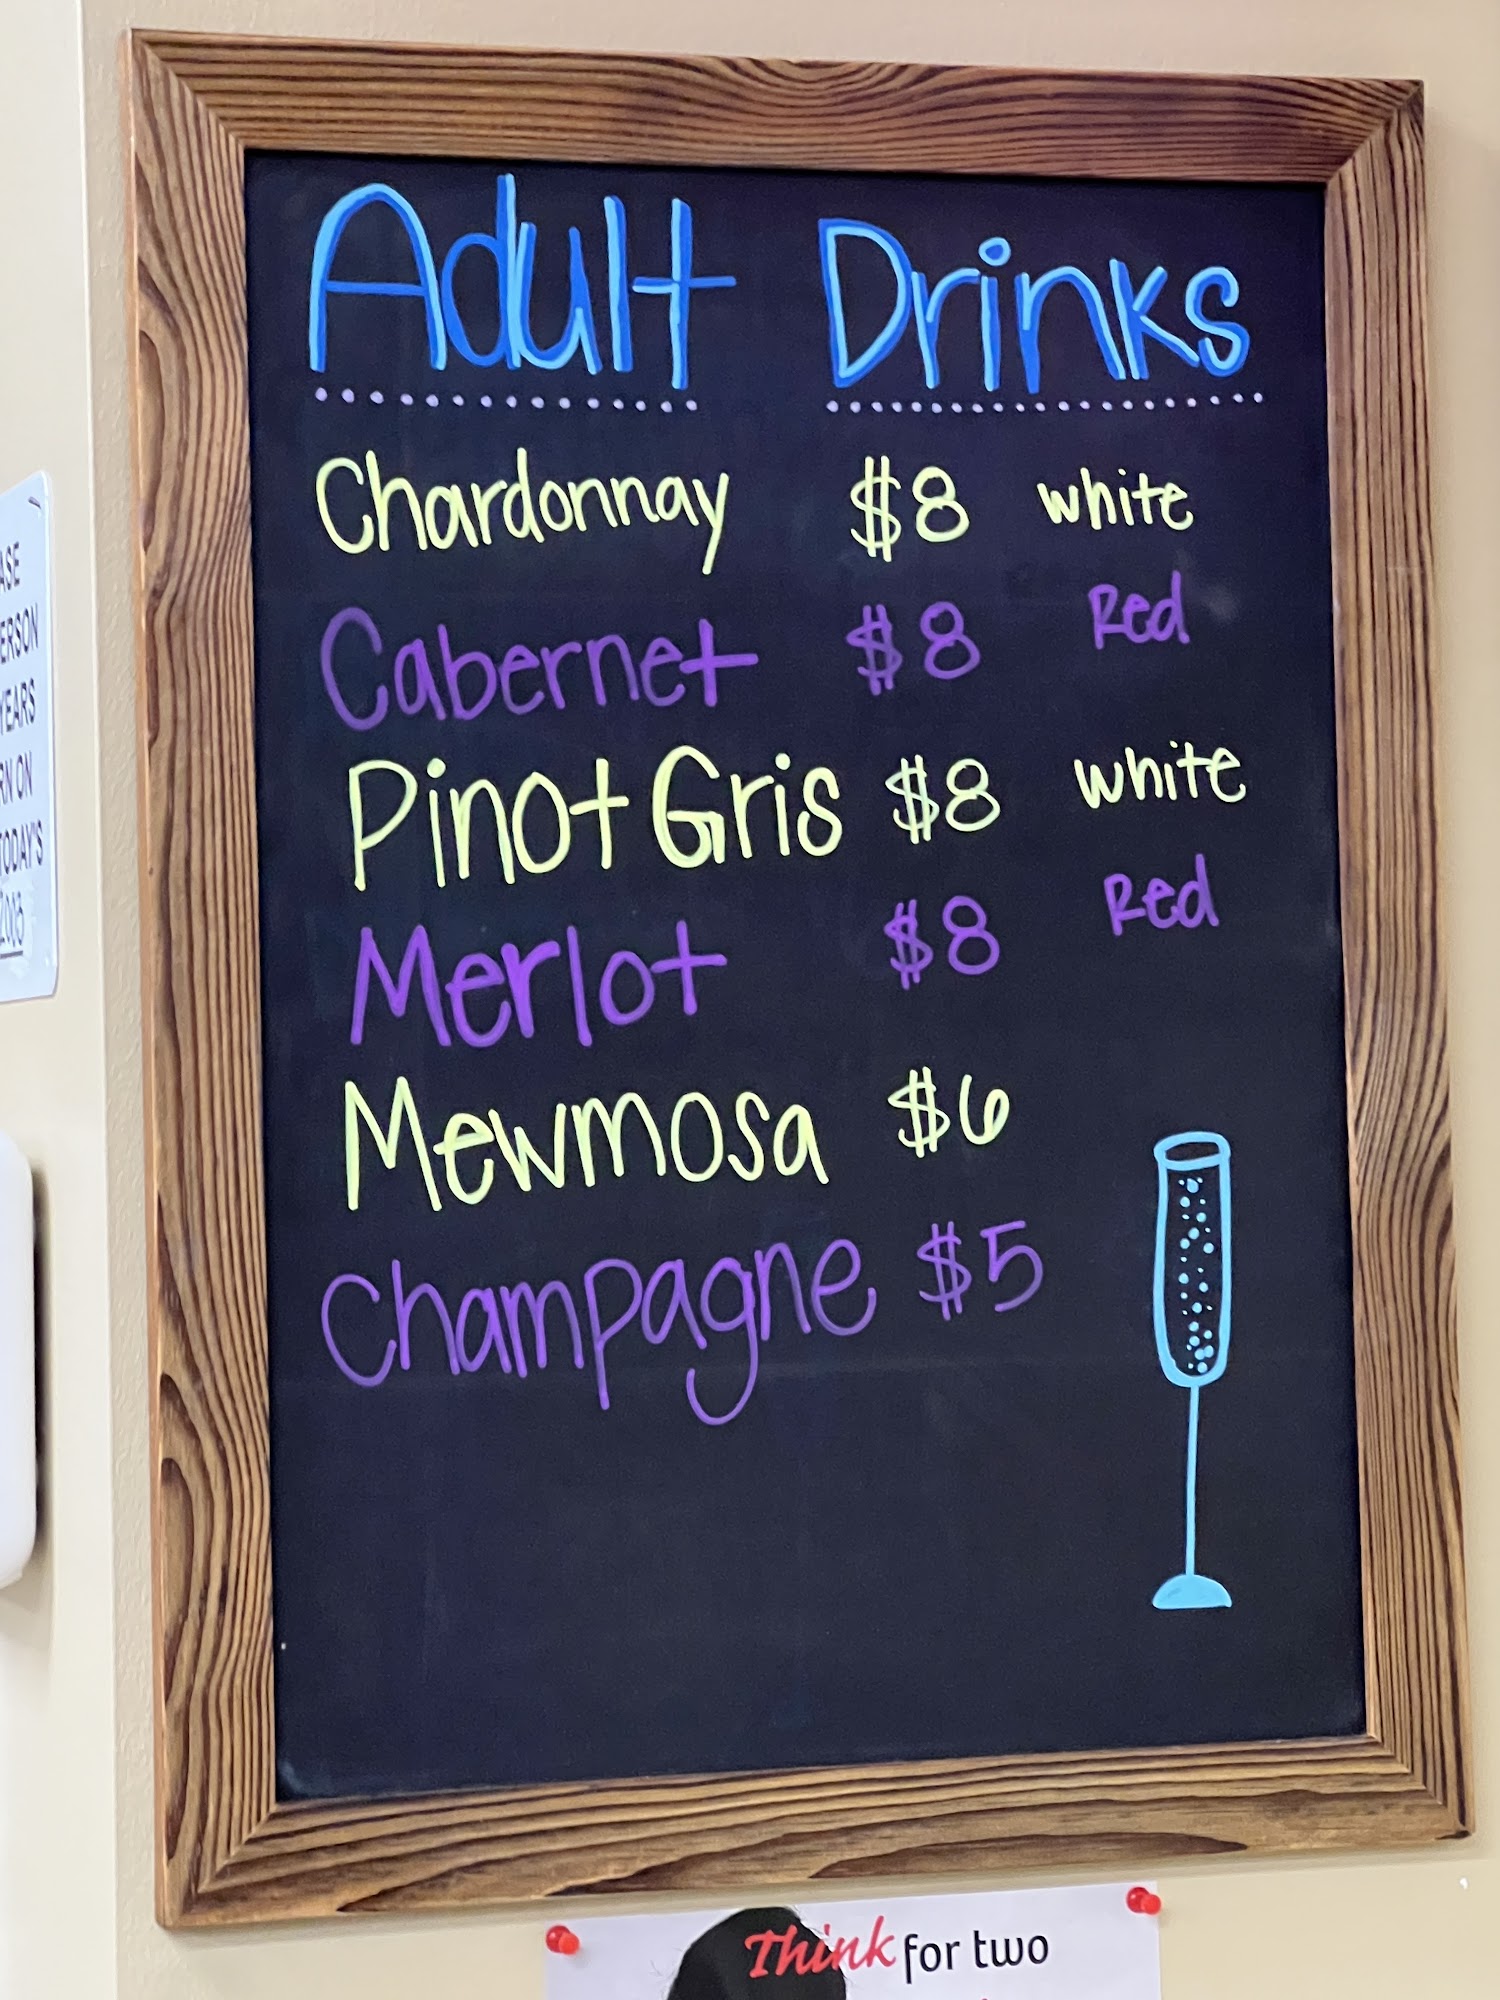 Adult Drinks
Chardonnay $8 white
Cabernet $8 Red
Pinot Gris $8 white
Merlot $8 Red
Mewmosa $6
Champagne $5
ASE
ERSON
YEARS
RN ON
TODAY'S
2003
Think for two